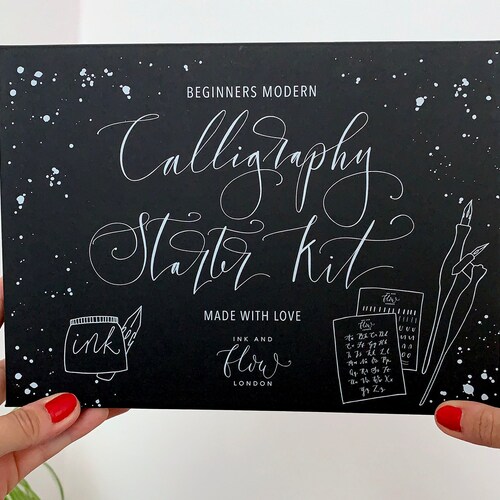 BEGINNERS MODERN
Calligraphy
Starter Kit
MADE WITH LOVE
INK AND
flow
LONDON
ink
flow
flow